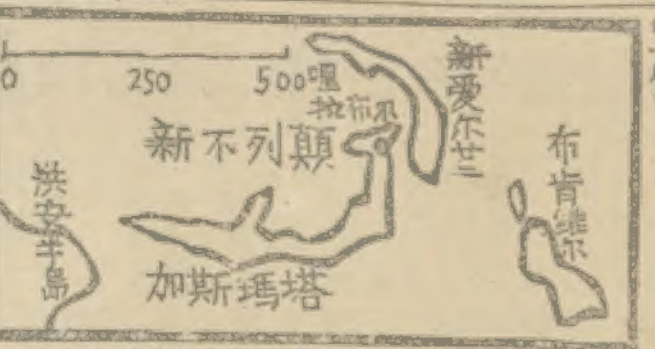 0 250 500哩
拉布尔
新爱尔兰
新不列顛
布肯維尔
洪安半島
加斯瑪塔